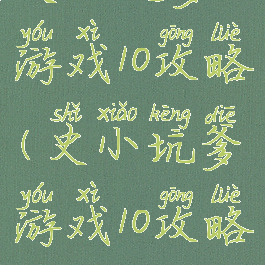 yóu xì gōng lüè
游戏10攻略
shǐ xiǎo kēng diē
(史小坑爹
yóu xì gōng lüè
游戏10攻略